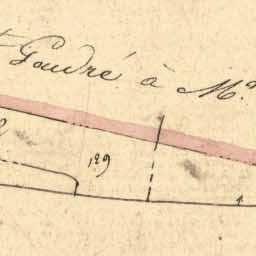 Goudré à M.
129